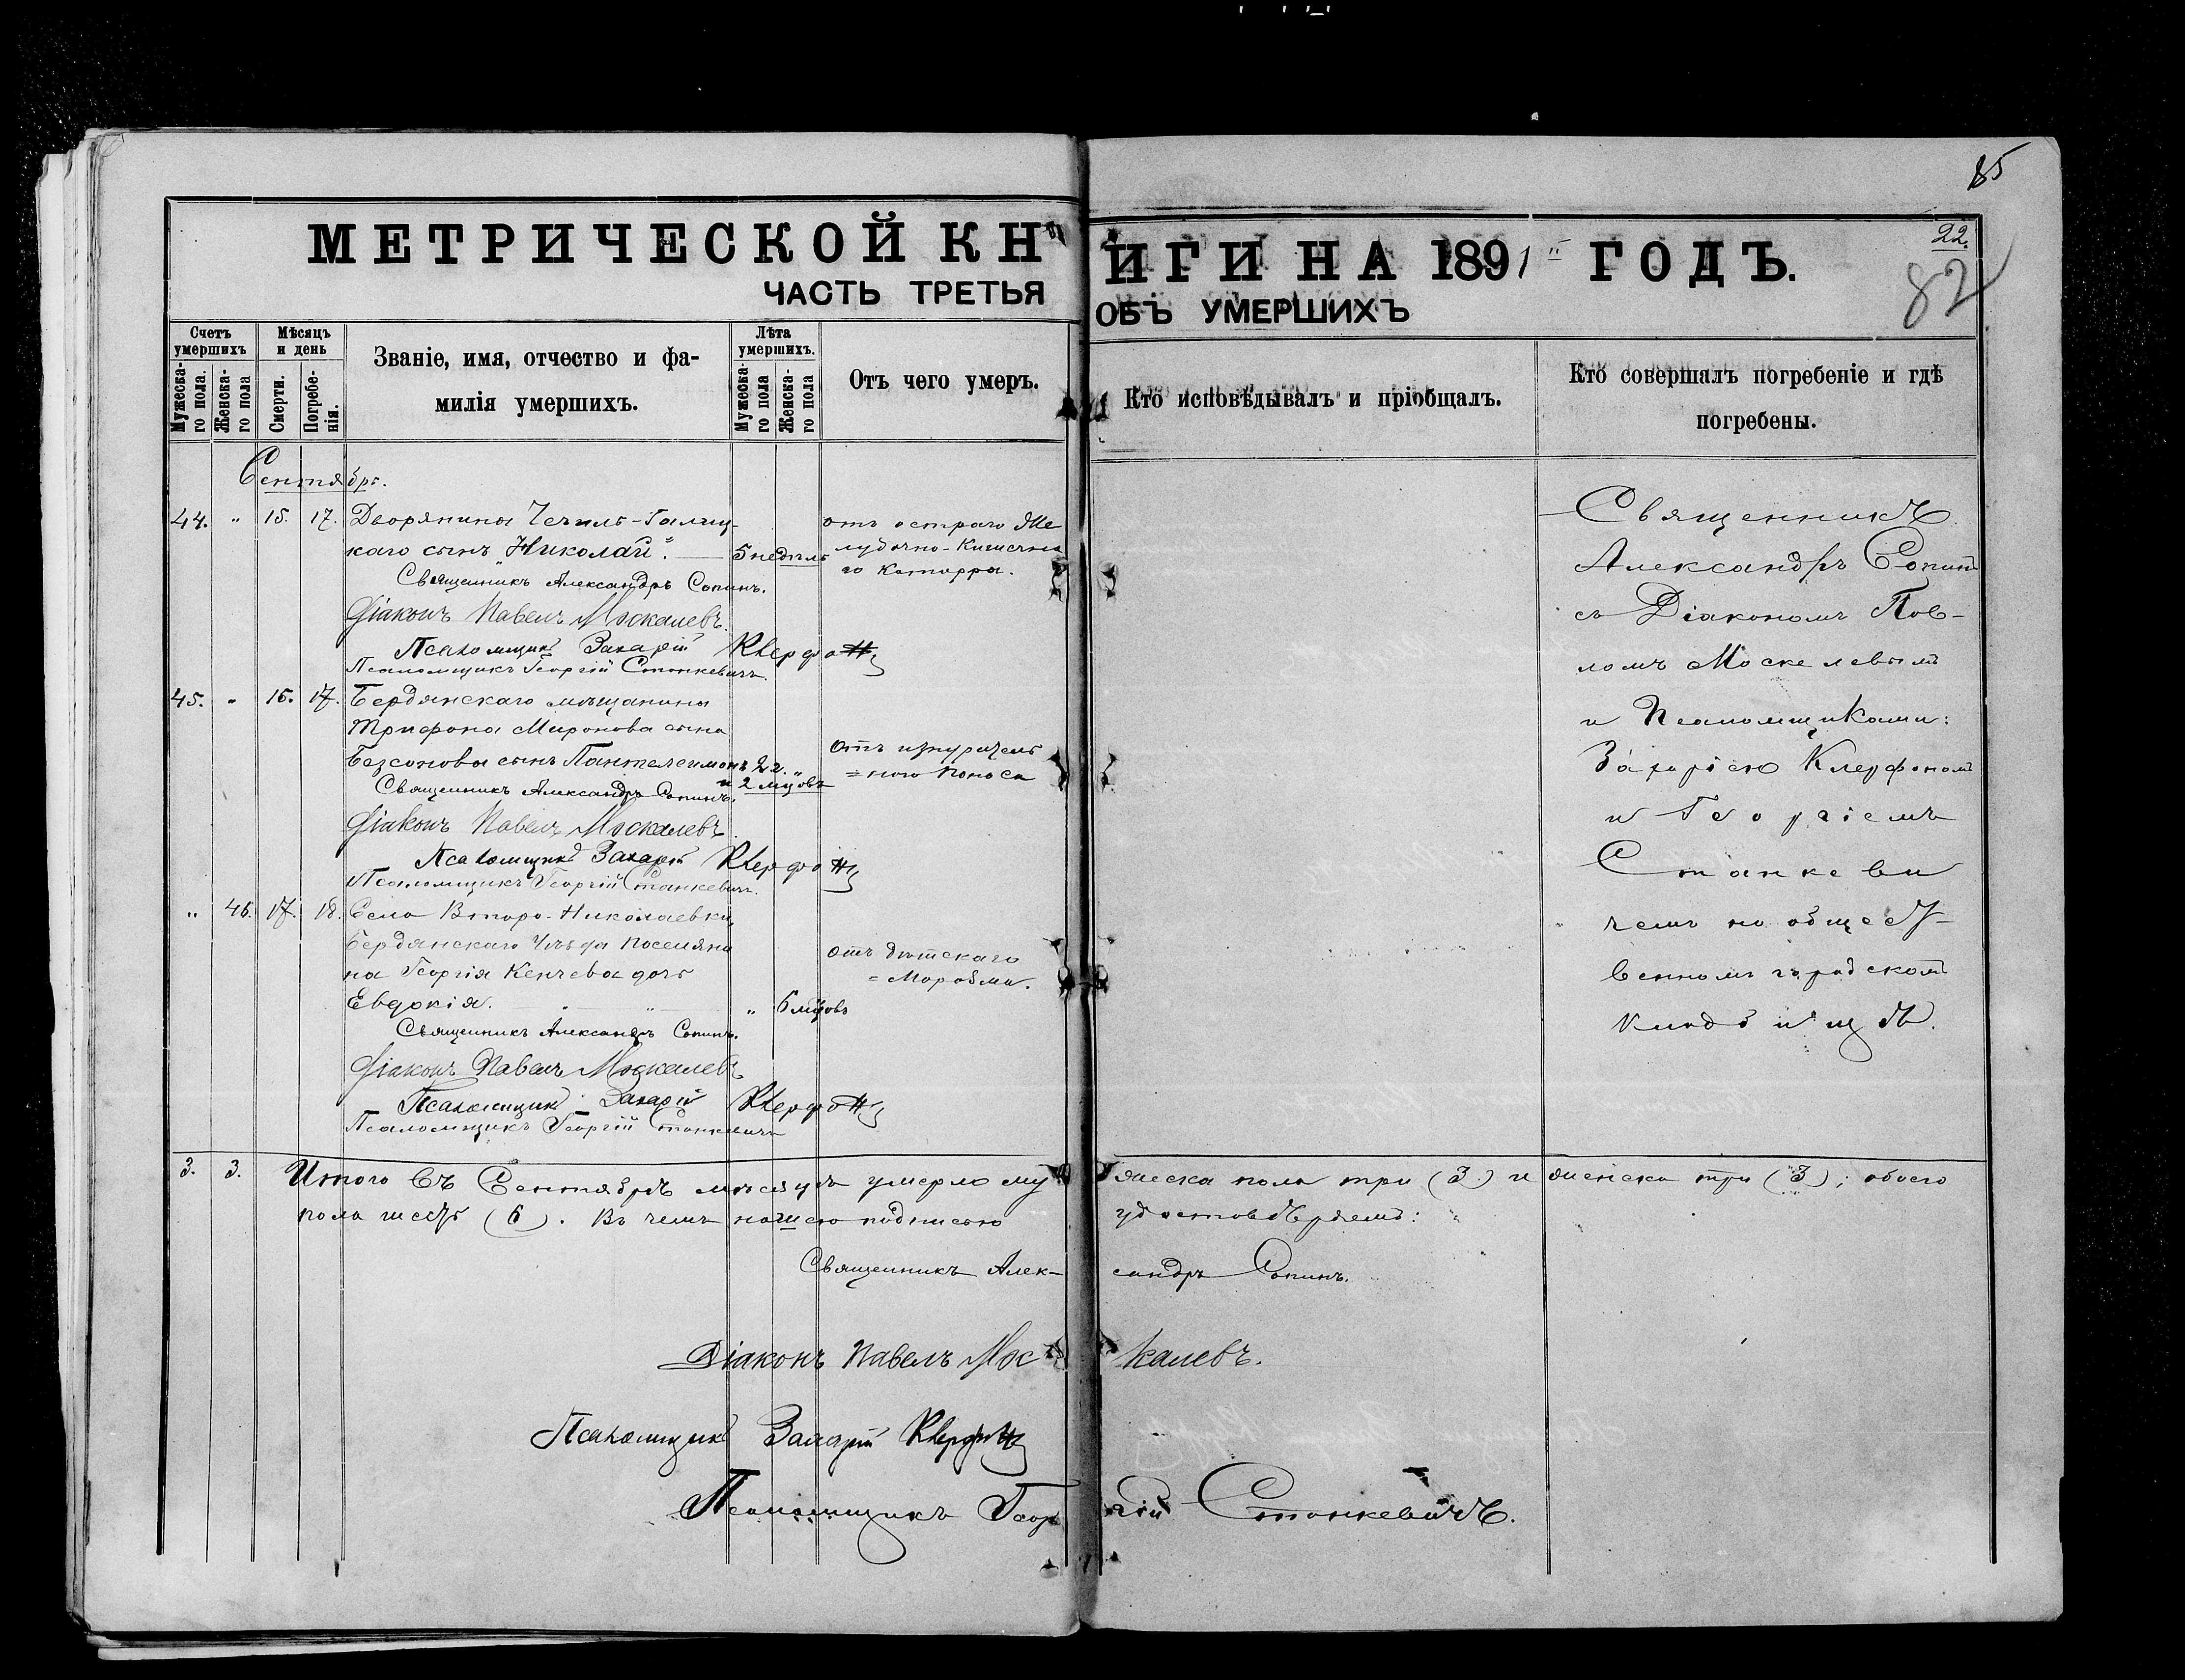 85
МЕТРИЧЕСКОЙ КНИГИ НА 1891й ГОДЪ.
22.
82
ЧАСТЬ ТРЕТЬЯ ОБЪ УМЕРШИХЪ
Счетъ умершихъ
Мужеска-го пола.
Женска-го пола
Мѣсяцъ и день
Смерти.
Погребе-нія.
Званіе, имя, отчество и фа-
милія умершихъ.
Лѣта умершихъ.
Мужеска-го пола
Женска-го пола
Отъ чего умеръ.
Кто исповѣдывалъ и пріобщалъ.
Кто совершалъ погребеніе и гдѣ
погребены.
Сентябрь.
44. " 15. 17. Дворянина Чечиль-Галиц-
каго сынъ "Николай". 5 недѣль
отъ остраго Же
лудочно-Кишечна
го Катарра.
Священникъ Александръ Сопинъ.
Діаконъ Павелъ Москалевъ.
Псаломщикъ Захарій Клерфонъ
Псаломщикъ Георгій Станкевичъ.
45. " 16. 17. Бердянскаго мѣщанина
Трифона Миронова сына
Безсонова сынъ Пантелеимонъ 2 г. "
и 2 мцовъ
Отъ изнурител
=наго поноса
Священникъ Александръ Сопинъ.
Діаконъ Павелъ Москалевъ
Псаломщикъ Захарій Клерфонъ
Псаломщикъ Георгій Станкевичъ.
" 46. 17. 18. Села Второ-Николаевки,
Бердянскаго Уѣзда поселяни
на Георгія Кенчева дочь
Евдокія. " 6 мцовъ
Отъ дѣтскаго
=Маразма.
Священникъ Александръ Сопинъ.
Діаконъ Павелъ Москалевъ
Псаломщикъ Захарій Клерфонъ
Псаломщикъ Георгій Станкевичъ
Священникъ
Александръ Сопинъ
съ Діакономъ Пав-
ломъ Москалевымъ
и Псаломщиками:
Захаріею Клерфономъ
и Георгіемъ
Станкеви
чемъ на общест-
венномъ городскомъ
кладбищѣ.
3. 3. Итого въ Сентябрѣ мѣсяцѣ умерло мужеска пола три (3) и женска три (3); обоего
пола шесть (6). Въ чемъ нашею подписью удостовѣряемъ:
Священникъ Александръ Сопинъ.
Діаконъ Павелъ Москалевъ.
Псаломщикъ Захарій Клерфонъ
Псаломщикъ Георгій Станкевичъ.